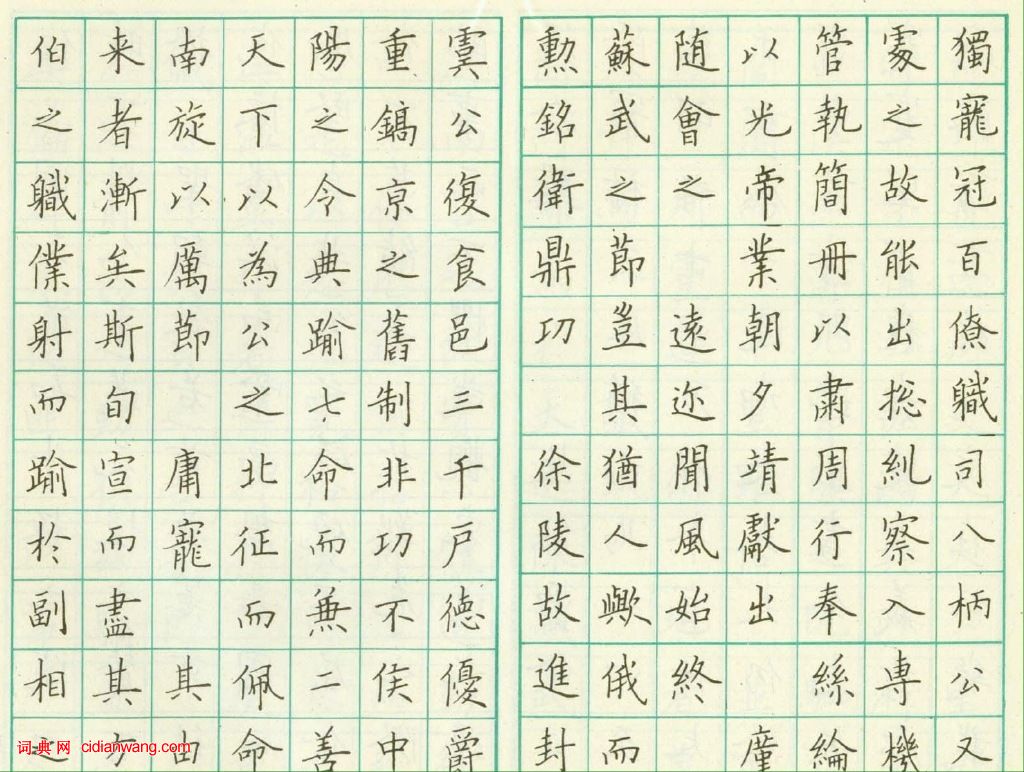 獨寵冠百僚職司八柄公又
處之故能出揔糺察入専機
管執簡冊以肅周行奉絲綸
以光帝業朝夕靖獻出 廑
随會之 遠迩聞風始終
蘇武之節豈其猶人歟俄而
勲銘衛鼎功 徐陵故進封
虞公復食邑三千戸徳優爵
重鎬京之舊制非功不侯中
陽之令典踰七命而兼二善
天下以為公之北征而佩命
南旋以厲節 庸寵 其由
来者漸矣斯旬宣而盡其方
伯之職僕射而踰於副相
词典网 cidianwang.com